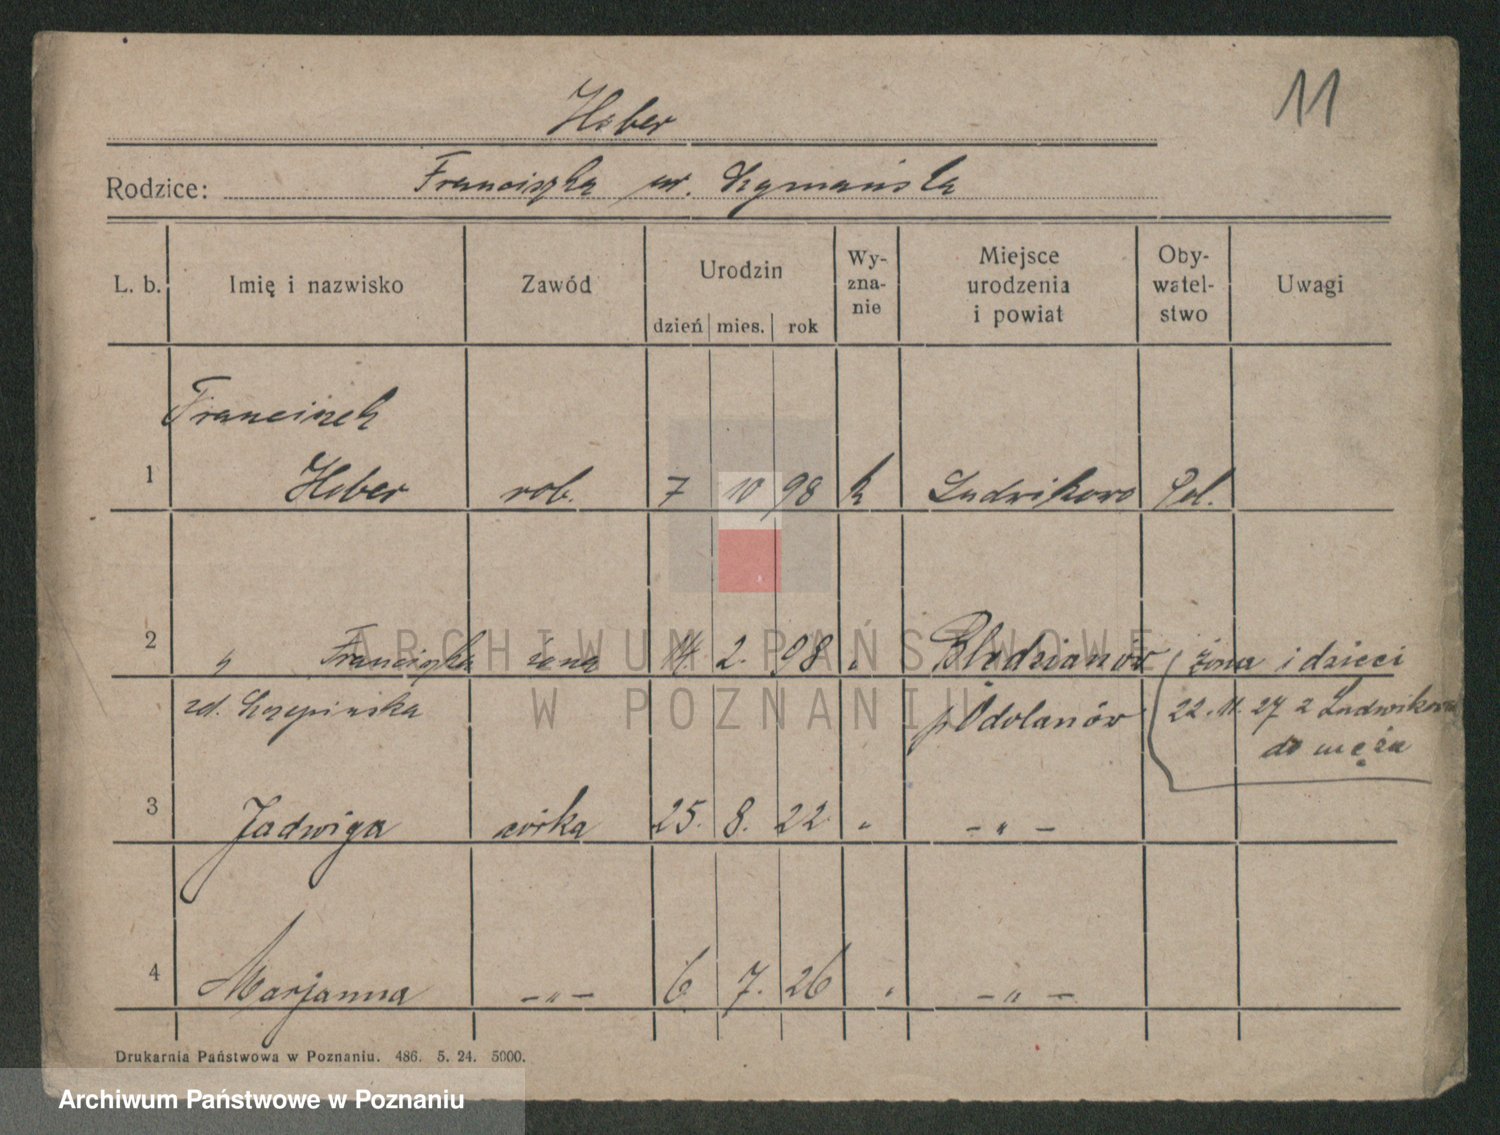 11
Heber
Rodzice: Franciszka ur. Szymańska
L. b. Imię i nazwisko Zawód Urodzin dzień mies. rok Wy-zna-nie Miejsce urodzenia i powiat Oby-watel-stwo Uwagi
Franciszek
1 Heber rob. 7 10 98 k Ludwikowo Pol.
2 " Franciszka żona 14. 2. 98 " Bledzianów żona i dzieci
zd. Szczepińska p Odolanów 22. 11. 27 z Ludwikowa
do męża
3 Jadwiga córka 25. 8. 22 " - " -
4 Marjanna - " - 6 7. 26 " - " -
Drukarnia Państwowa w Poznaniu. 486. 5. 24. 5000.
ARCHIWUM PAŃSTWOWE
W POZNANIU
Archiwum Państwowe w Poznaniu